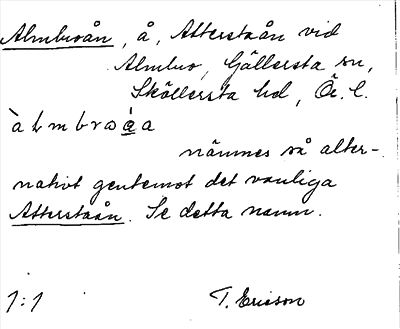 Almbroån, å, Atterstaån vid
Almbro, Gällersta sn,
Sköllersta hd, Ör. l.
nämnes så alter-
nativt gentemot det vanliga
Atterstaån. Se detta namn.
1:1 T. Ericson